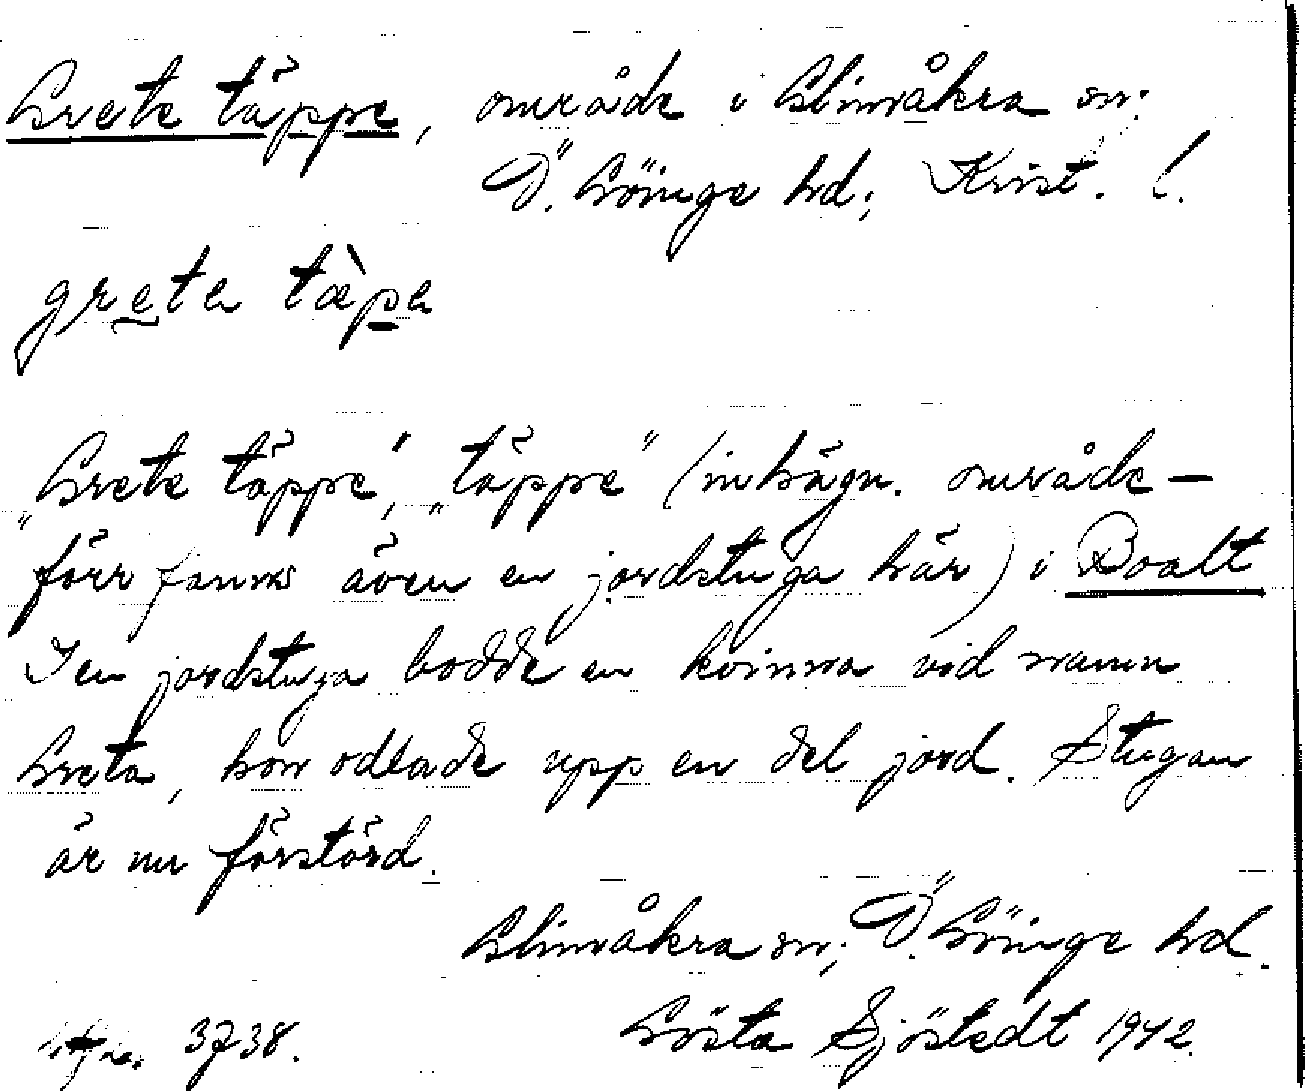 Grete täppe, område i Glimåkra sn;
Ö. Göinge hd; Krist. l.
greta tàpa
"Grete täppe", "täppe" (inhägn. område –
förr fanns även en jordstuga här) i Boalt
I en jordstuga bodde en kvinna vid namn
Greta, hon odlade upp en del jord. Stugan
är nu förstörd.
Glimåkra sn; Ö. Göinge hd.
Gösta Sjöstedt 1942
3738.